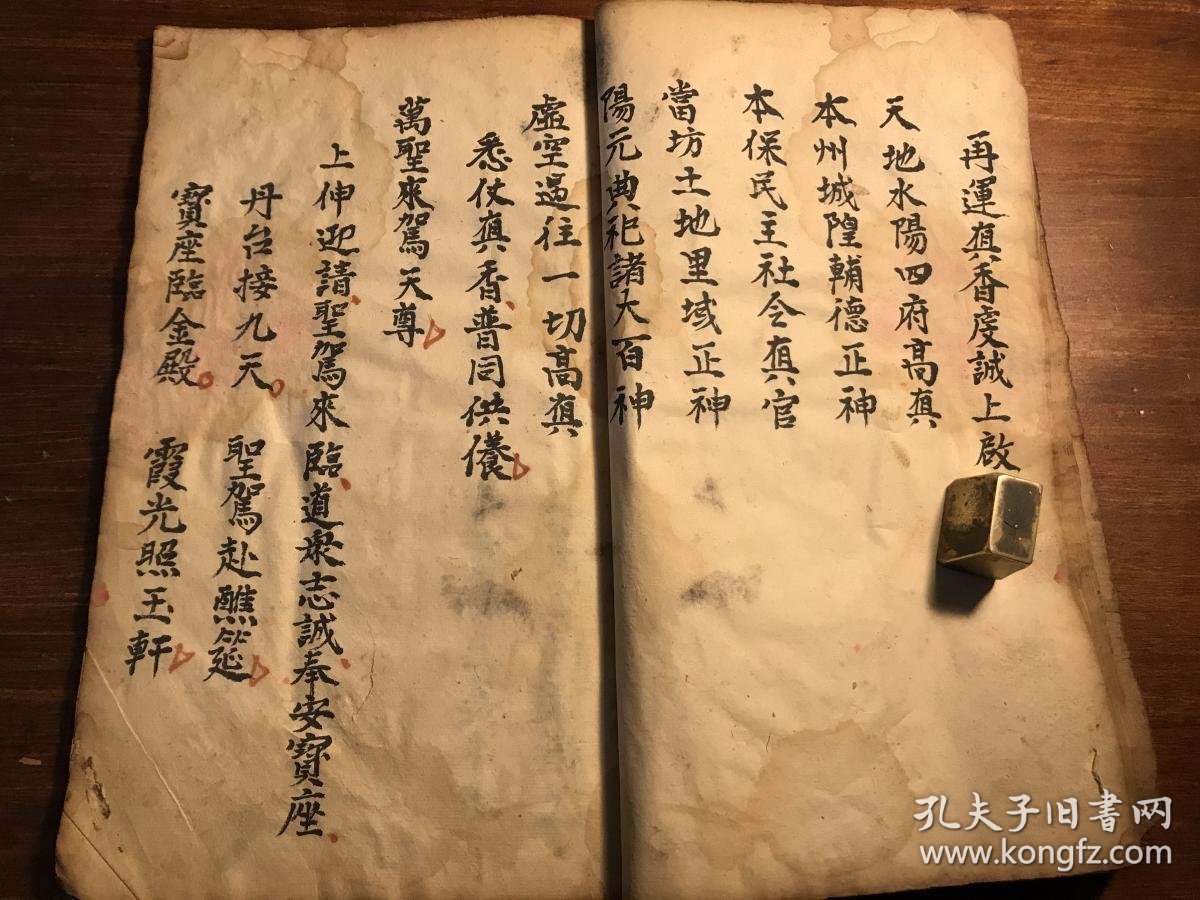 再運真香虔誠上啟
天地水陽四府高真
本州城隍輔德正神
本保民主社令真官
當坊土地里域正神
陽元典祀諸大百神
虛空過往一切高真
悉仗真香普同供養
萬聖來駕天尊
上伸迎請聖駕來臨道衆志誠奉安寶座
丹台接九天 聖駕赴醮筵
寶座臨金殿 霞光照玉軒
孔夫子旧书网
www.kongfz.com